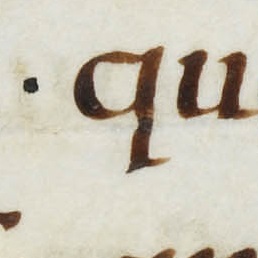 · qu